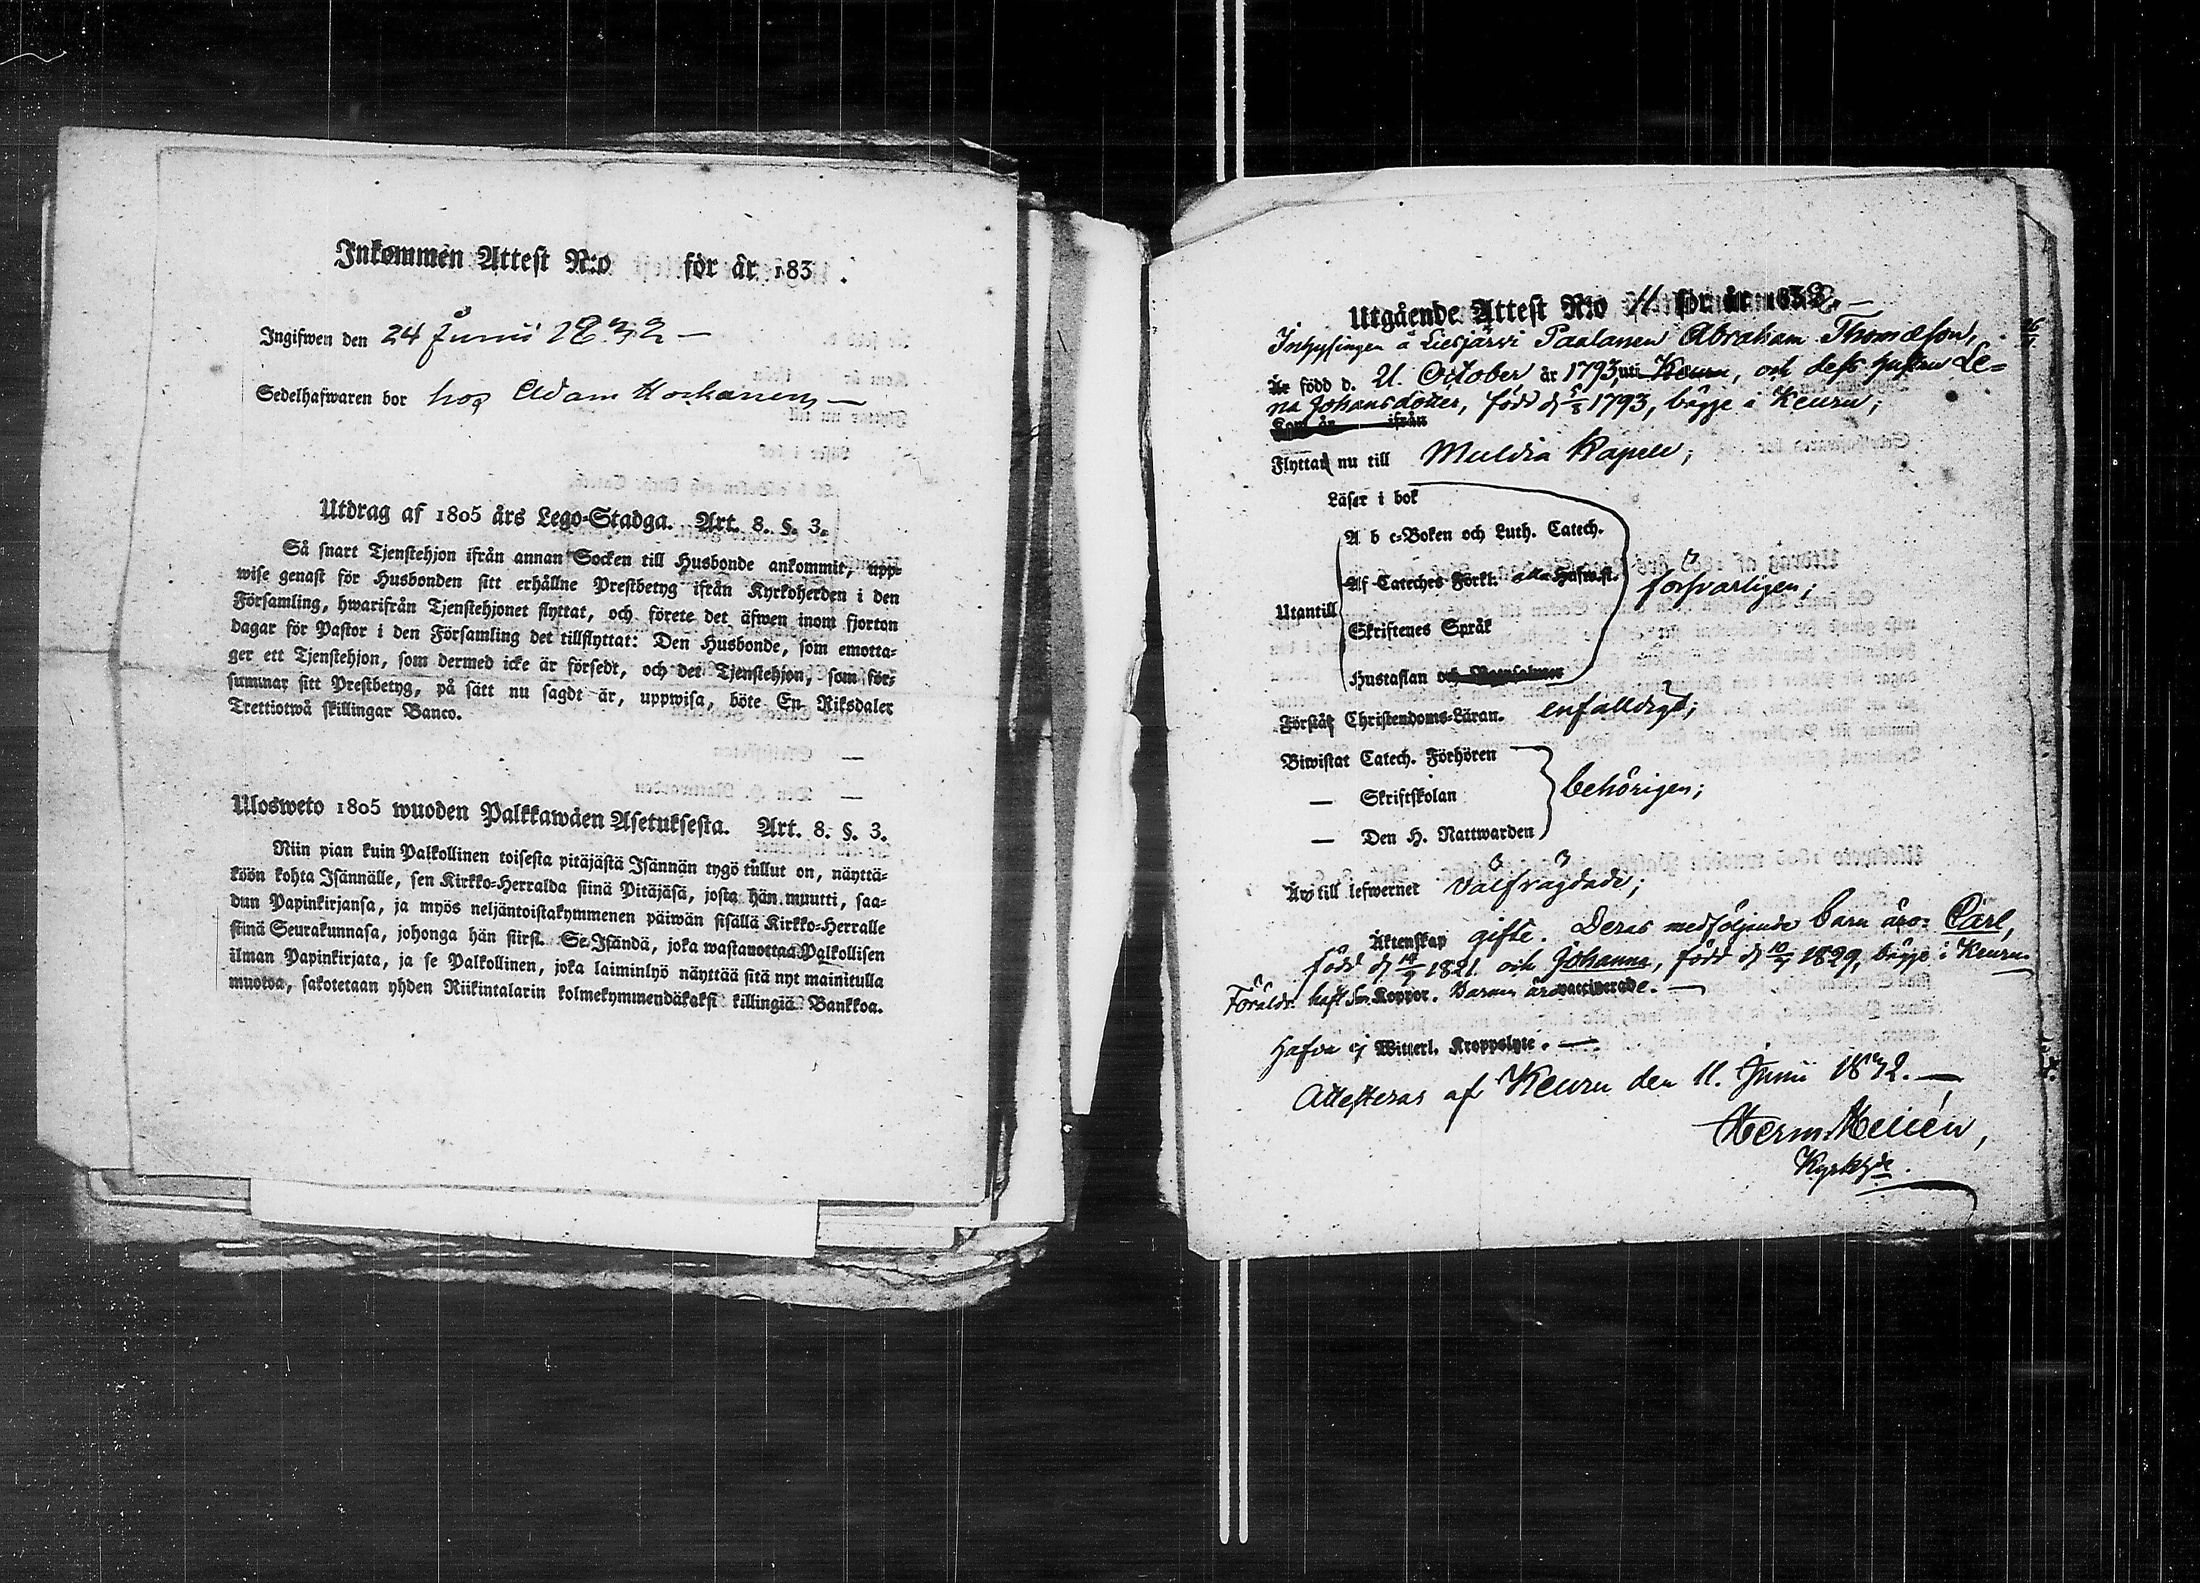 Inkommen Attest N:o för år 183 .
Ingifwen den 24 Junii 1832 —
Sedelhafwaren bor hos Adam
Utdrag af 1805 års Lego-Stadga. Art. 8. §. 3.
Så snart Tjenstehjon ifrån annan Socken till Husbonde ankommit, upp-
wise genast för Husbonden sitt erhållne Prestbetyg ifrån Kyrkoherden i den
Församling, hwarifrån Tjenstehjonet flyttat, och förete det äfwen inom fjorton
dagar för Pastor i den Församling det tillflyttat: Den Husbonde, som emotta-
ger ett Tjenstehjon, som dermed icke är försedt, och det Tjenstehjon, som för-
summar sitt Prestbetyg, på sätt nu sagdt är, uppwisa, böte En Riksdaler
Trettiotwå skillingar Banco.
Ulosweto 1805 wuoden Palkkawäen Asetuksesta. Art. 8. §. 3.
Niin pian kuin Palkollinen toisesta pitäjästä Isännän tygö tullut on, näyttä-
köön kohta Isännälle, sen Kirkko-Herralda siinä Pitäjäsä, josta hän muutti, saa-
dun Papinkirjansa, ja myös neljäntoistakymmenen päiwän sisällä Kirkko-Herralle
siinä Seurakunnasa, johonga hän siirsi. Se Isändä, joka wastanottaa Palkollisen
ilman Papinkirjata, ja se Palkollinen, joka laiminlyö näyttää sitä nyt mainitulla
muotoa, sakotetaan yhden Riikintalarin kolmekymmendäkaksi killingiä Bankkoa.
Utgående Attest N:o 11 för år 1832. —
Inhysingen å Liesjärvi Paalanen Abraham Thomæson,
Är född d. 21. October år 1793 uti Keuru, och dess hustru Le-
na Johansdotter, född d 5/8 1793, bägge i Keuru;
Kom år ifrån
Flytta nu till Muldia Kapell;
Läser i bok
A b c-Boken och Luth. Catech.
Af Cateches Förkl. alla Hufwst. försvarligen;
Utantill
Skriftenes Språk
Hustaflan och
Förstå Christendoms-Läran. enfalldigt;
Biwistat Catech. Förhören
— Skriftskolan behörigen;
— Den H. Nattwarden
Äro till lefwernet välfrägdade;
Äktenskap gifte. Deras medföljande barn äro: Carl,
född d 14/9 1821 och Johanna, född d 10/7 1829, bägge i Keuru.
Föräldr. haft Koppor. Barnen äro vaccinerade. —
Hafva ej Witterl. Kroppslyte. —
Attesteras af Keuru den 11. Junii 1832. —
Herm.